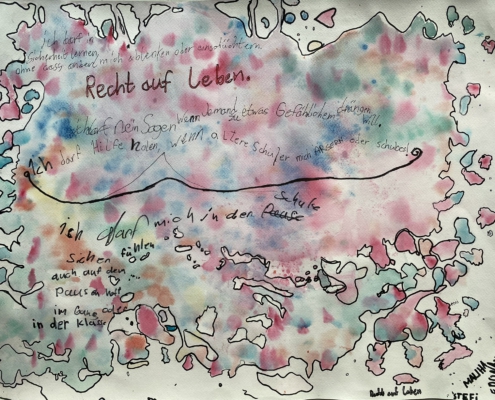 Ich darf in
Sicherheit lernen,
ohne dass andere mich ablenken oder einschüchtern
Recht auf Leben.
Ich darf Nein Sagen wenn Jemand zu etwas Gefährlichem drängen will.
Ich darf Hilfe holen, wenn ältere Schüler mich oder schubsen
Schule
Ich darf mich in der Pause
Sicher fühlen
auch auf dem
Pausenhof
im Gang oder
in der Klasse
Recht auf Leben
MALIHA
STEFI